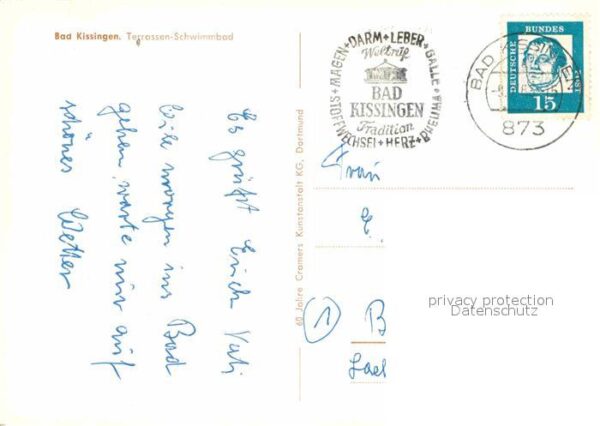 Bad Kissingen. Terrassen-Schwimmbad
STOFFWECHSEL + MAGEN + DARM + LEBER + GALLE + RHEUMA + HERZ +
Weltruf
BAD
KISSINGEN
Tradition
BAD KISSINGEN
873
DEUTSCHE
BUNDES
POST
15
Es grüßt Erich Vati
morgen ins Bad
gehen, warte nur auf
schönes Wetter
60 Jahre Cramers Kunstanstalt KG, Dortmund
Frau
E.
1 B
privacy protection
Datenschutz